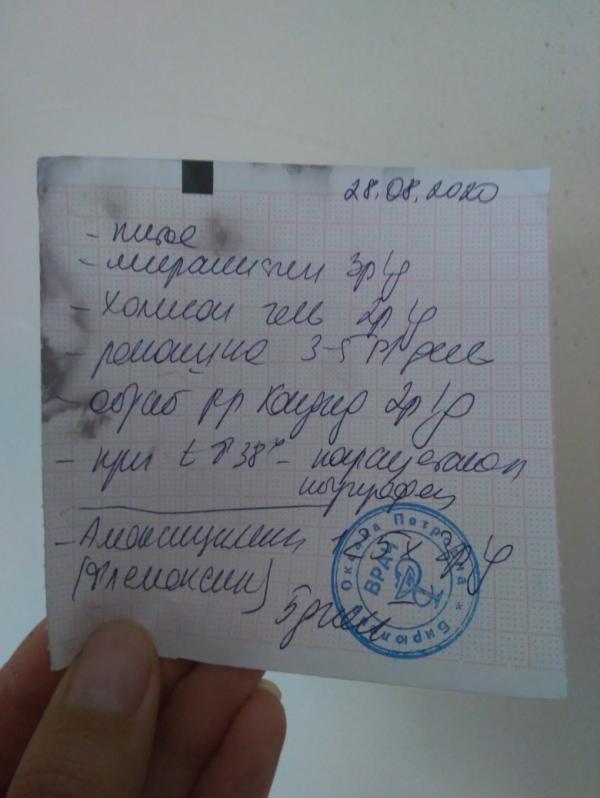 28.08.2020
- питье
- мирамистин 3р/д
- Холисал гель 2р/д
- ромашка 3-5 р/день
- обраб рр Кандид 2р/д
- при t ↑ 38° - парацетамол
нурофен
- Амоксициллин
(Флемоксин)
5 дней
Оксана Петровна * Бирюк
ВРАЧ